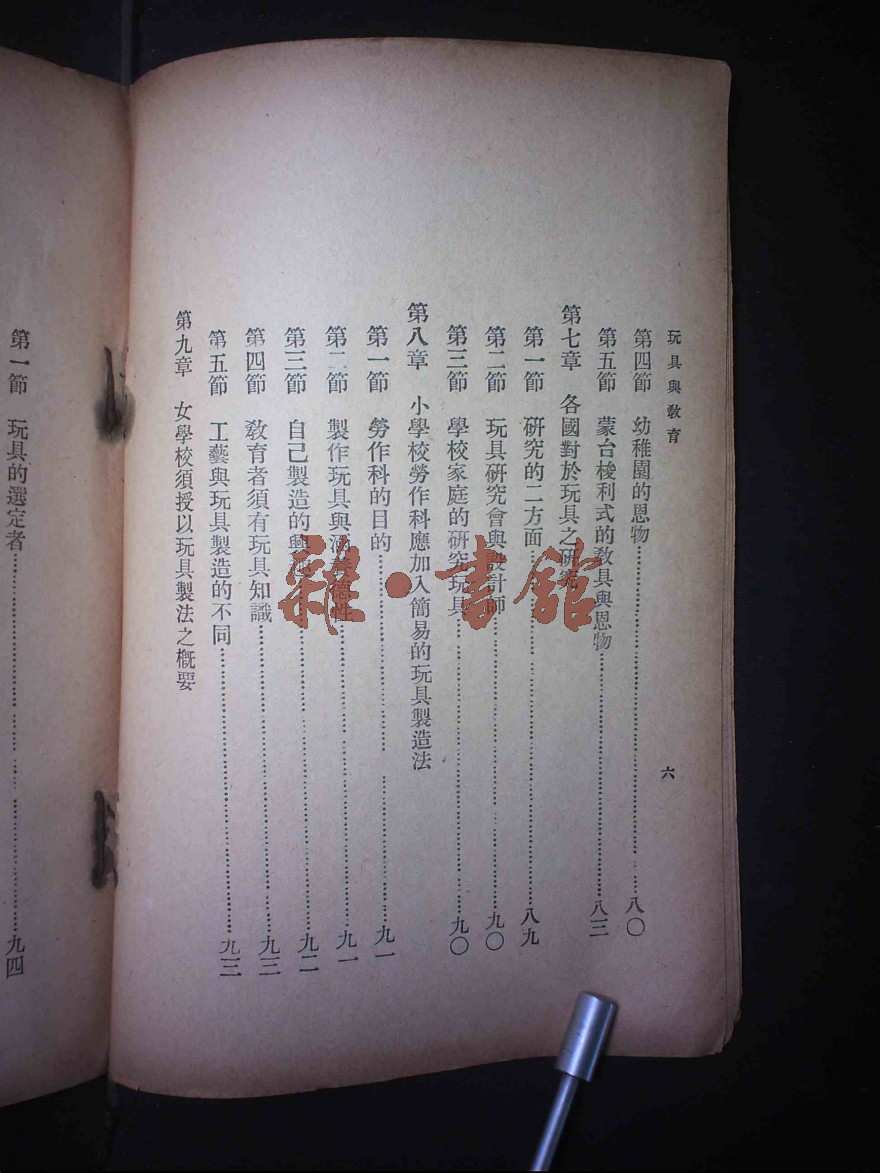 玩具與教育
六
第四節 幼稚園的恩物 八〇
第五節 蒙台梭利式的教具與恩物 八三
第七章 各國對於玩具之研究
第一節 研究的二方面 八九
第二節 玩具研究會與設計師 九〇
第三節 學校家庭的研究玩具 九〇
第八章 小學校勞作科應加入簡易的玩具製造法
第一節 勞作科的目的 九一
第二節 製作玩具與涵養德性 九一
第三節 自己製造的興 九二
第四節 教育者須有玩具知識 九三
第五節 工藝與玩具製造的不同 九三
第九章 女學校須授以玩具製法之概要
第一節 玩具的選定者 九四
雜·書館